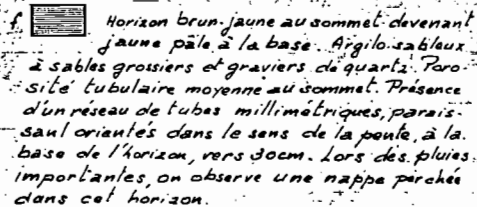 f Horizon brun-jaune au sommet devenant
jaune pâle à la base. Argilo-sableux
à sables grossiers et graviers de quartz. Poro-
sité tubulaire moyenne au sommet. Présence
d'un réseau de tubes millimétriques, parais-
sant orientés dans le sens de la pente, à la
base de l'horizon, vers 30cm. Lors des pluies
importantes, on observe une nappe perchée
dans cet horizon.